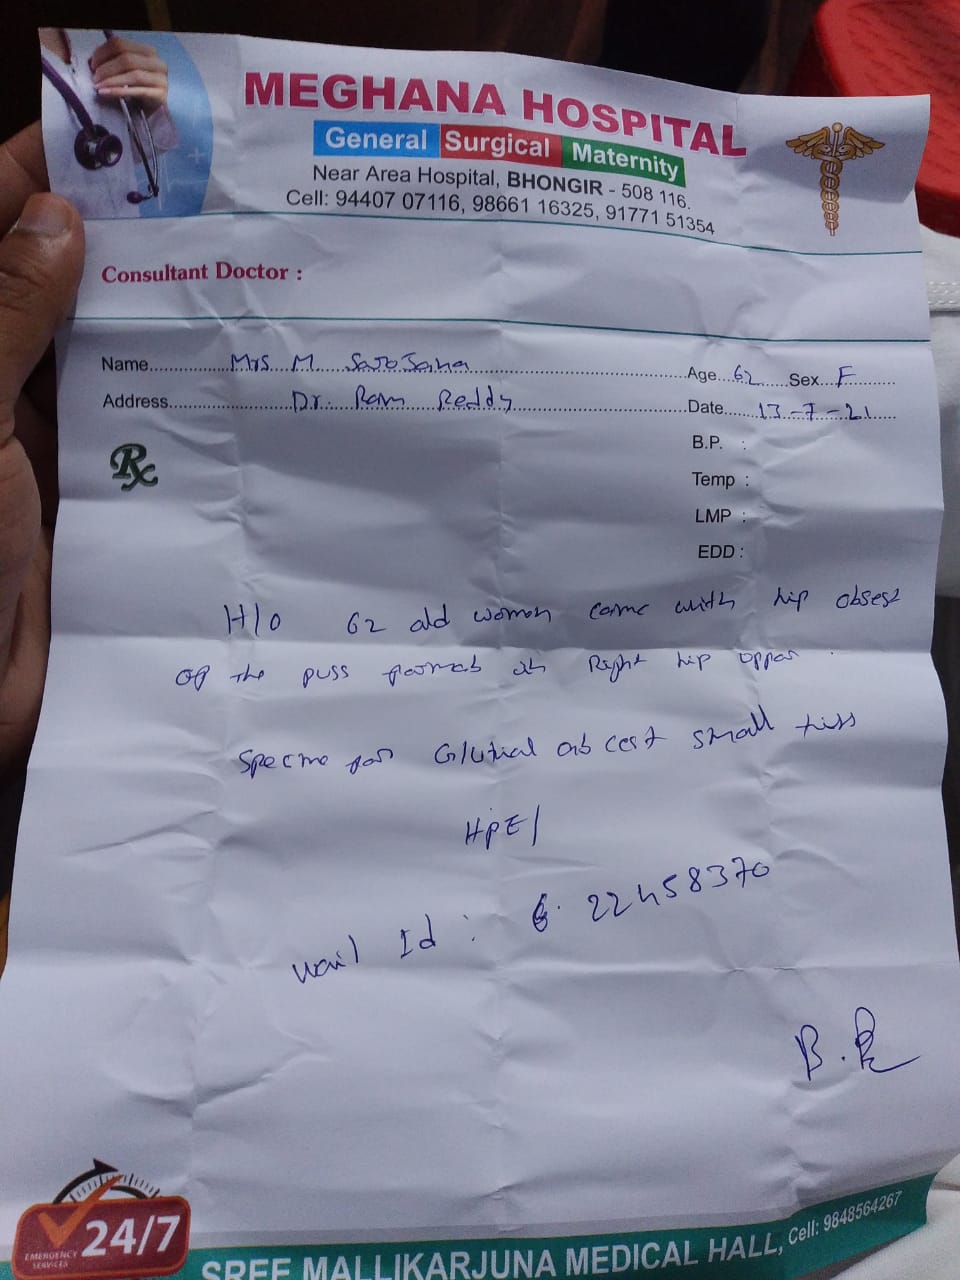 MEGHANA HOSPITAL
General Surgical Maternity
Near Area Hospital, BHONGIR - 508 116.
Cell: 94407 07116, 98661 16325, 91771 51354
Consultant Doctor :
Name Mrs. M. Sarojana Age 62 Sex F
Address Dr. Ram Reddy Date 13-7-21
Rx
B.P. :
Temp :
LMP :
EDD :
H/O 62 old women came with hip obsest
of the puss formed at Right hip oppar.
Specme for Glutial abcest small tiss
HPE/
Mail Id : 22458370
B.
24/7
EMERGENCY SERVICES
SREE MALLIKARJUNA MEDICAL HALL, Cell: 9848564267